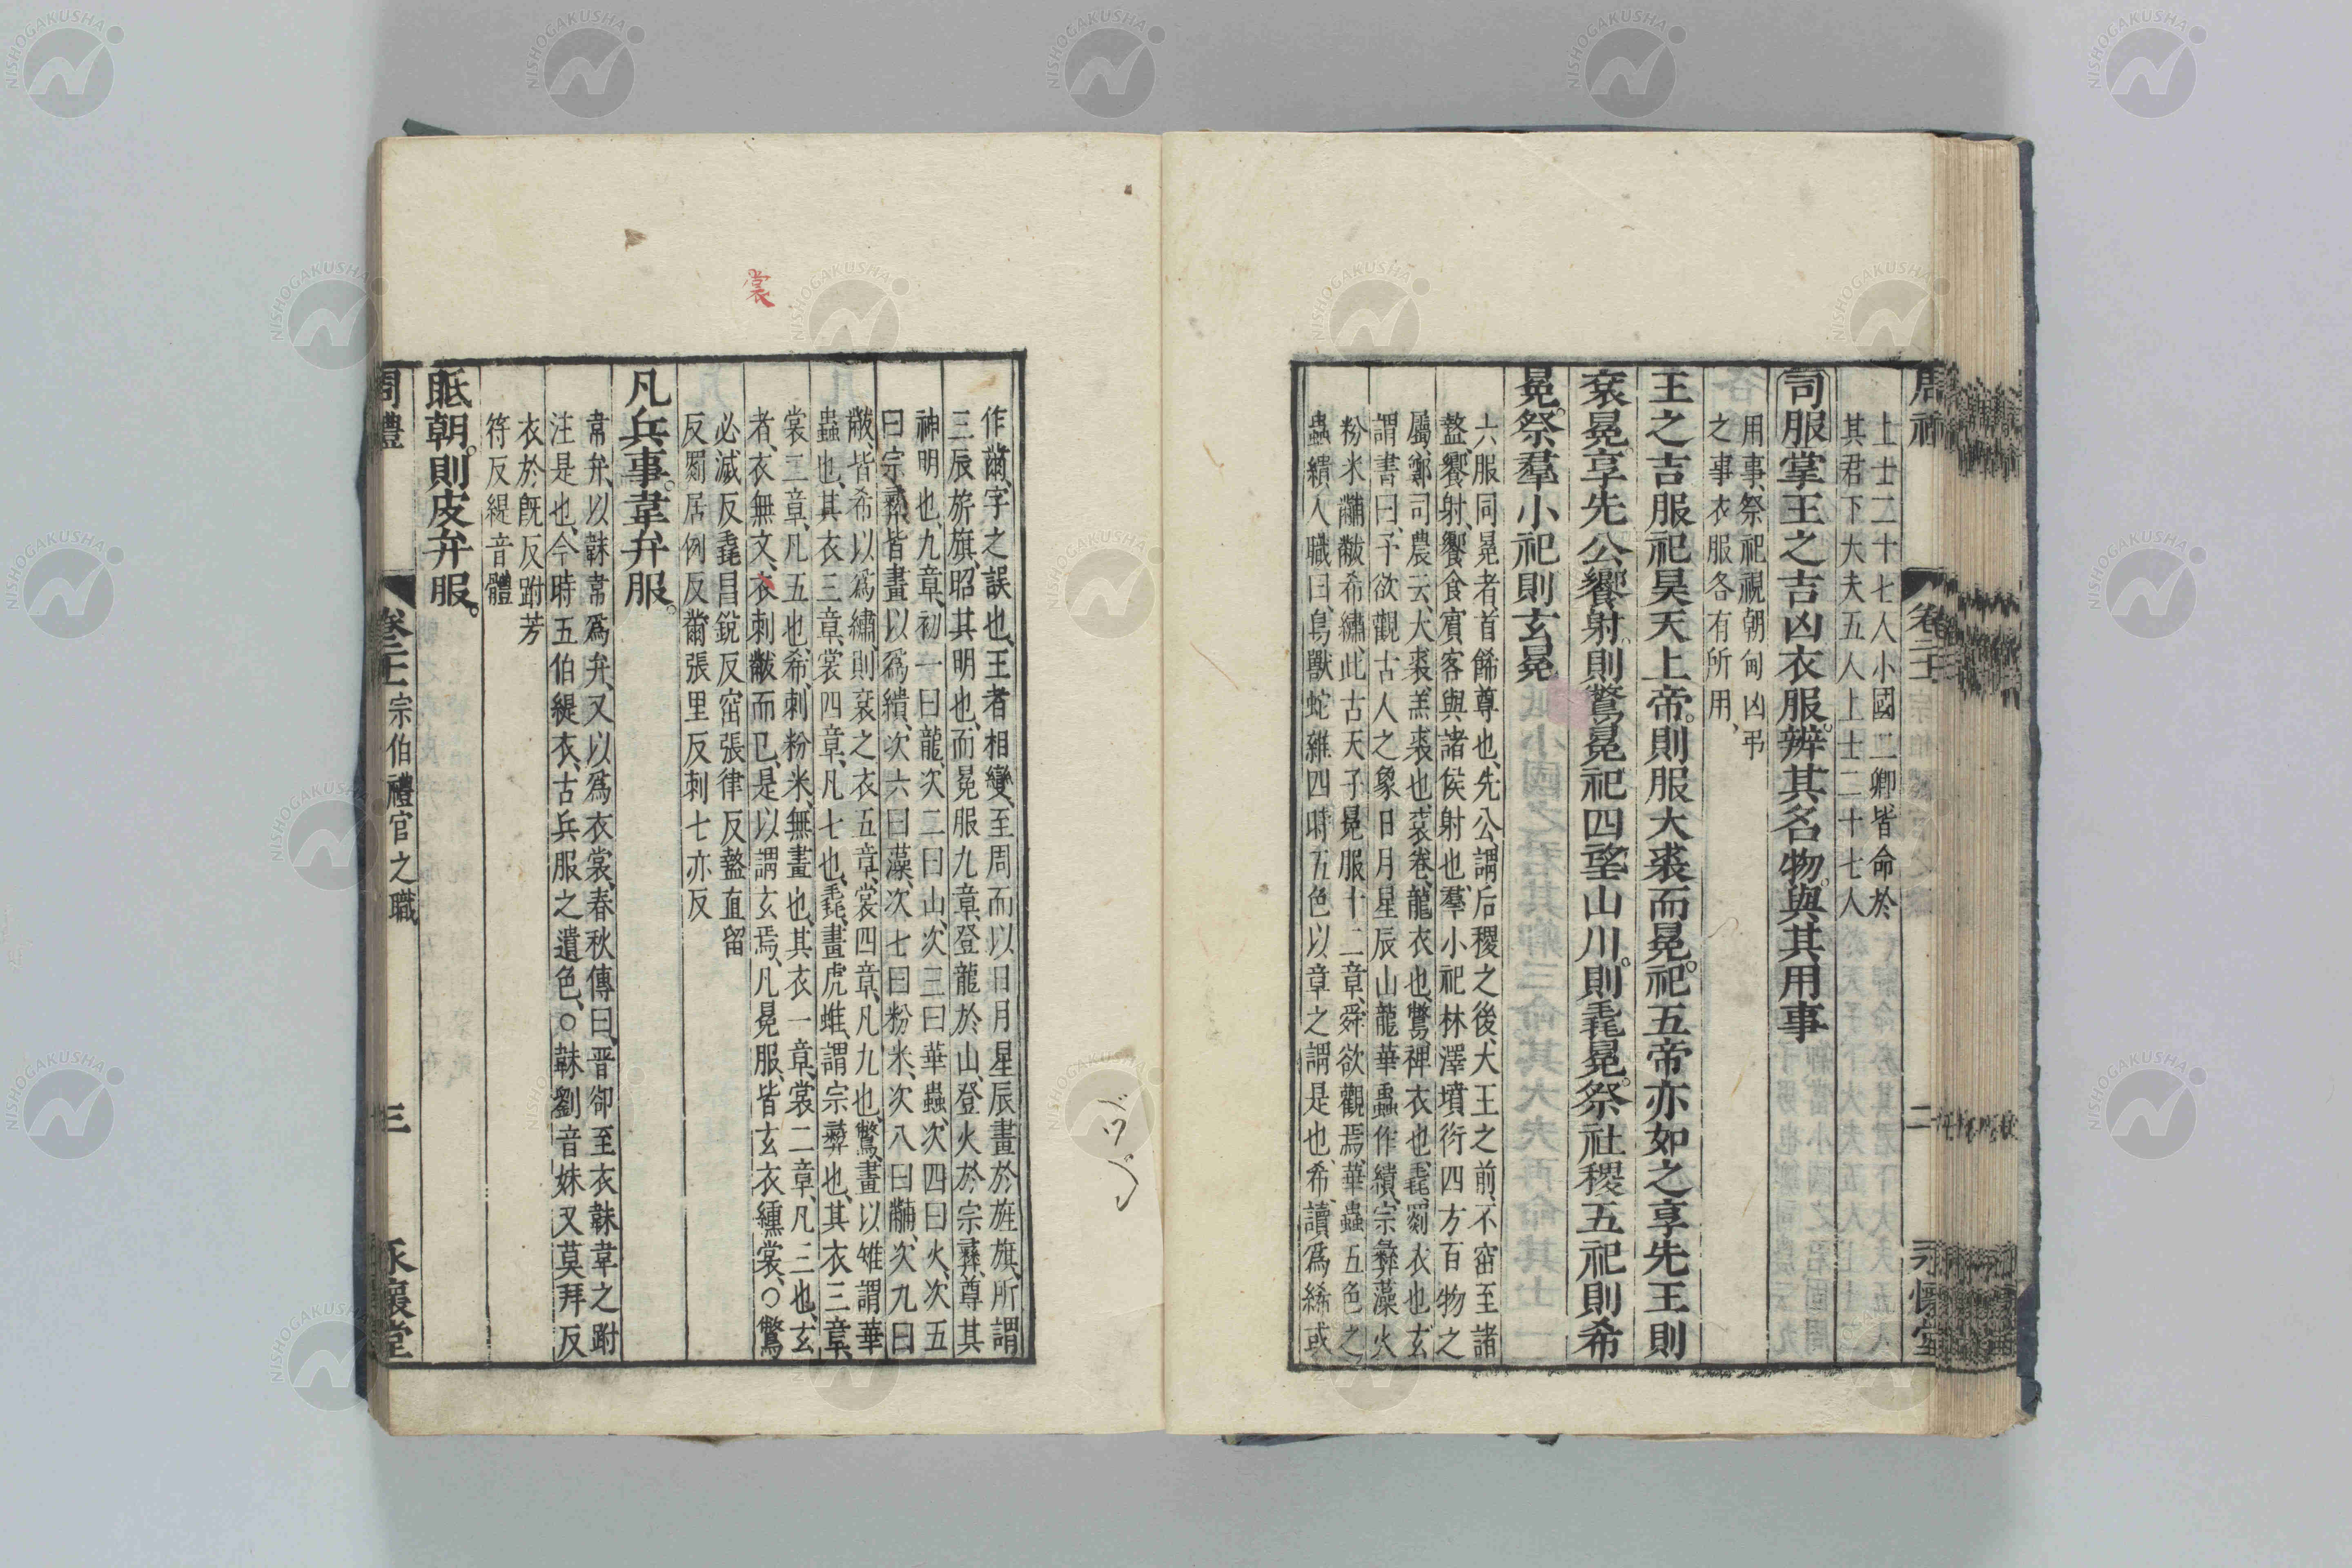 上士二十七人小國二卿皆命於
其君下大夫五人上士二十七人
司服掌王之吉凶衣服。辨其名物。與其用事
用事、祭祀視朝甸凶弔
之事衣服各有所用、
王之吉服祀昊天上帝。則服大裘而冕。祀五帝亦如之享先王則
袞冕享先公饗射。則鷩冕祀四望山川。則毳冕。祭社稷五祀則希
冕。祭羣小祀則玄冕
六服同冕者首飾尊也、先公謂后稷之後、大王之前、不窋至諸
盩、饗射、饗食賓客與諸侯射也、羣小祀林澤墳衍四方百物之
屬、鄭司農云、大裘、羔裘也、袞、卷、龍衣也、鷩、裨衣也、毳、罽衣也、玄
謂書曰、予欲觀古人之象日月星辰山龍華蟲作繢、宗彝藻火
粉米黼黻希繡、此古天子冕服十二章、舜欲觀焉、華蟲五色之
蟲繢人職曰、鳥獸蛇雜四時五色以章之謂是也、希、讀爲絺、或
作黹、字之誤也、王者相變、至周而以日月星辰畫於旌旗、所謂
三辰旂旗、昭其明也、而冕服九章、登龍於山、登火於宗彝、尊其
神明也、九章、初一曰龍、次二曰山、次三曰華蟲、次四曰火、次五
曰宗彝、皆畫以爲繢、次六曰藻、次七曰粉米、次八曰黼、次九曰
黻、皆希以爲繡、則袞之衣五章、裳四章、凡九也、鷩、畫以雉謂華
蟲也、其衣三章、裳四章、凡七也、毳、畫虎蜼、謂宗彝也、其衣三章
裳二章、凡五也、希、刺粉米、無畫也、其衣一章、裳二章、凡三也、玄
者、衣無文、衣刺黻而已、是以謂玄焉、凡冕服、皆玄衣纁裳、○鷩
必滅反毳昌銳反窋張律反盩直留
反罽居例反黹張里反刺七亦反
裳
凡兵事。韋弁服。
韋弁、以韎韋爲弁、又以爲衣裳、春秋傳曰、晋郤至衣韎韋之跗
注是也、今時五伯緹衣、古兵服之遺色、○韎劉音妹又莫拜反
衣於旣反跗芳
符反緹音體
眡朝。則皮弁服。
周禮 卷二十一 宗伯禮官之職 三 永懷堂